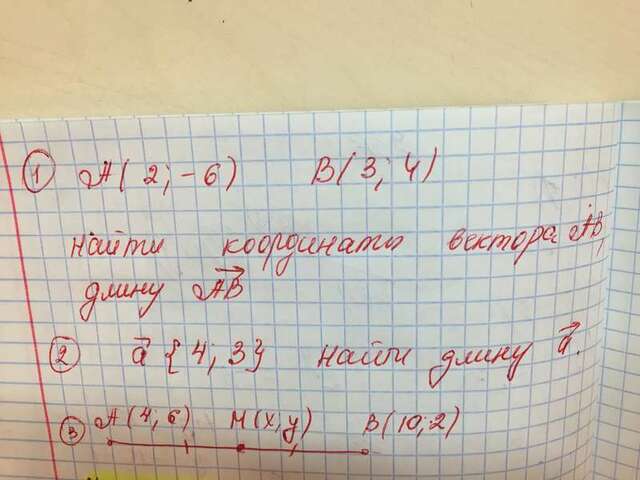 1 A(2;-6) B(3;4)
найти координаты вектора AB,
длину AB
2 a {4;3} найти длину a.
3 A(4;6) M(x,y) B(10;2)